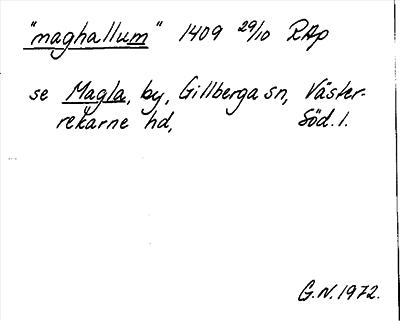 "maghallum" 1409 29/10 RAp
se Magla, by, Gillberga sn, Väster-
rekarne hd, Söd. l.
G.N. 1972.